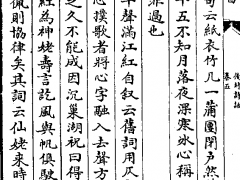 卷五
句云紙衣竹几一蒲團閉戶然
十五不知月落夜深寒冰心稱
非過也
平聲滿江紅自叙云舊詞用仄
心撲歌者將心字融入去聲方
之久不能成因汎巢湖祝曰得
紅為神姥壽言訖風與帆俱駛
佩則協律矣其詞云仙姥來時